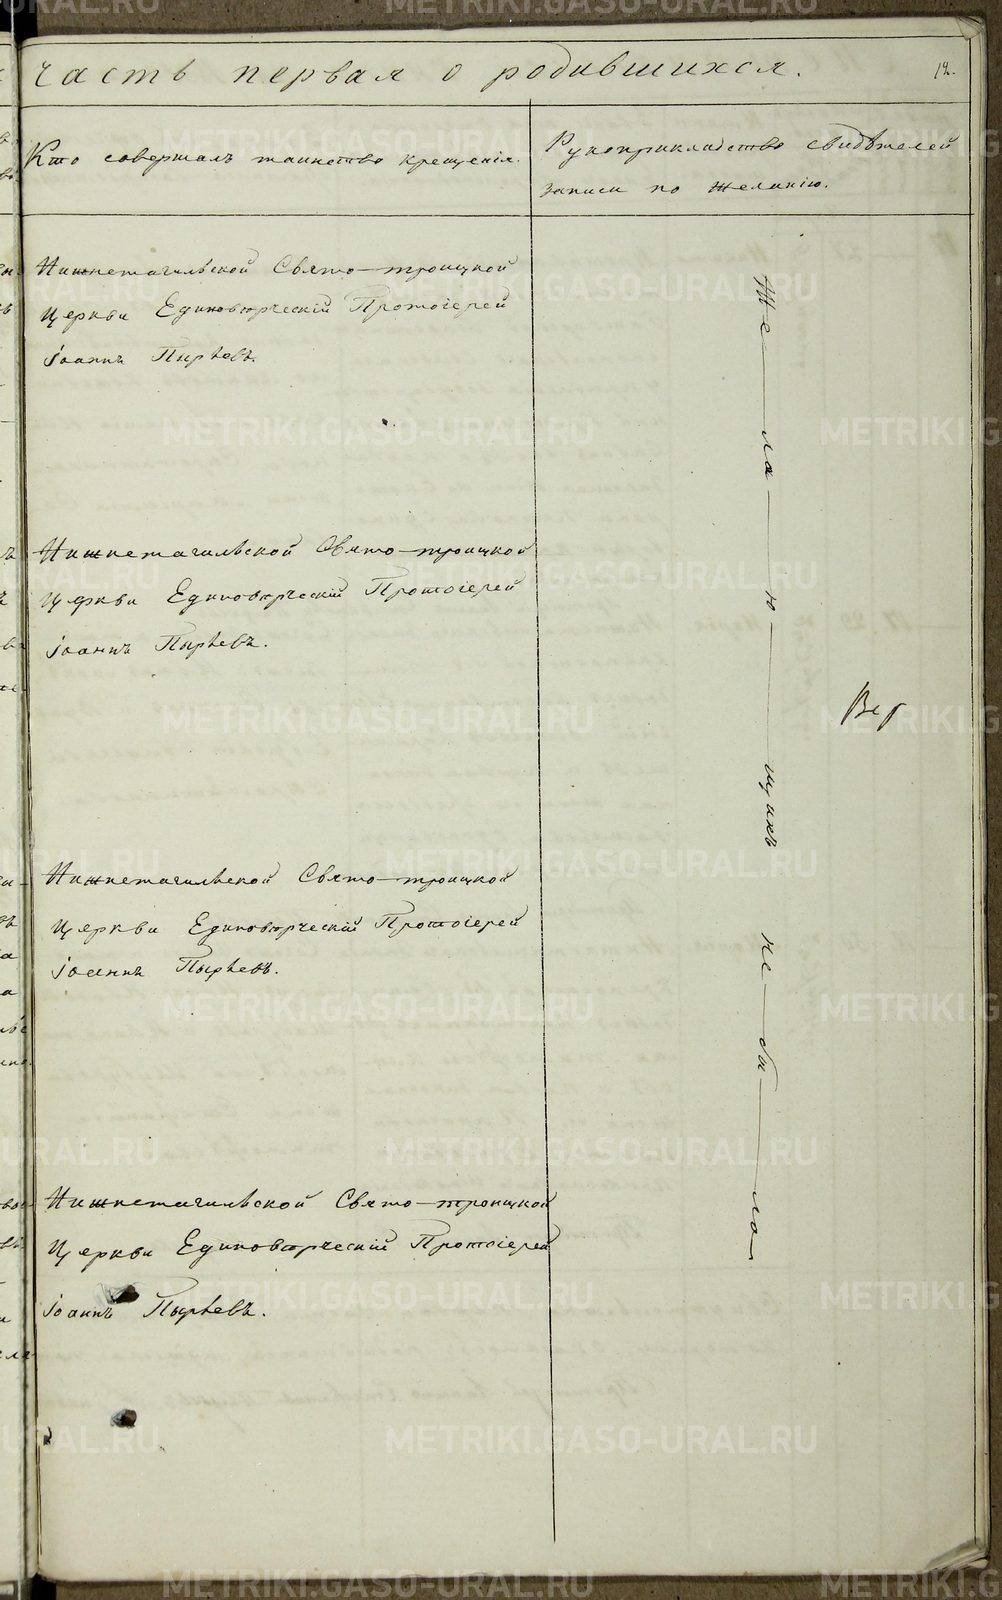 часть первая о родившихся.
12.
Кто совершалъ таинство крещенія.
Рукоприкладство свидѣтелей
записи по желанію.
Нижнетагильской Свято-троицкой
церкви Единовѣрческій Протоіерей
Іоаннъ Пырьевъ.
Нижнетагильской Свято-троицкой
церкви Единовѣрческій Протоіерей
Іоаннъ Пырьевъ.
Нижнетагильской Свято-троицкой
церкви Единовѣрческій Протоіерей
Іоаннъ Пырьевъ.
Нижнетагильской Свято-троицкой
Церкви Единовѣрческій Протоіерей
Іоаннъ Пырьевъ.
Же—ла—ю—щихъ не—бы—ло
METRIKI.GASO-URAL.RU